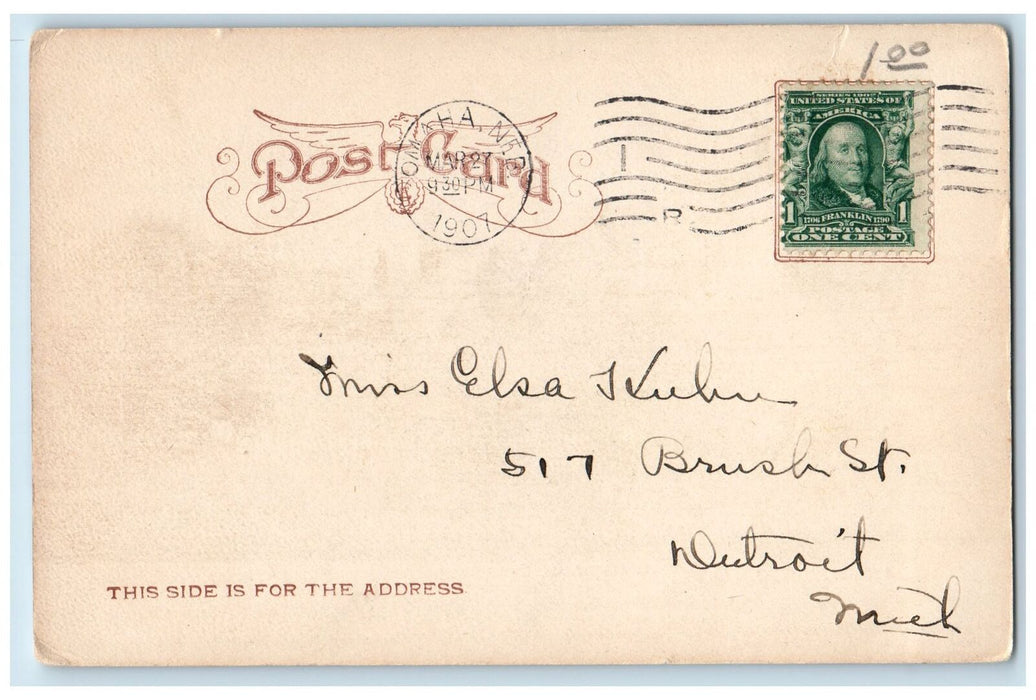 1.00
Post Card
OMAHA, NEBR.
MAR 27
9 30 PM
1907
1
R
SERIES 1902
UNITED STATES OF
AMERICA
1 1706 FRANKLIN 1790 1
POSTAGE
ONE CENT
Miss Elsa Kuhn
517 Brush St.
Detroit
Mich
THIS SIDE IS FOR THE ADDRESS.